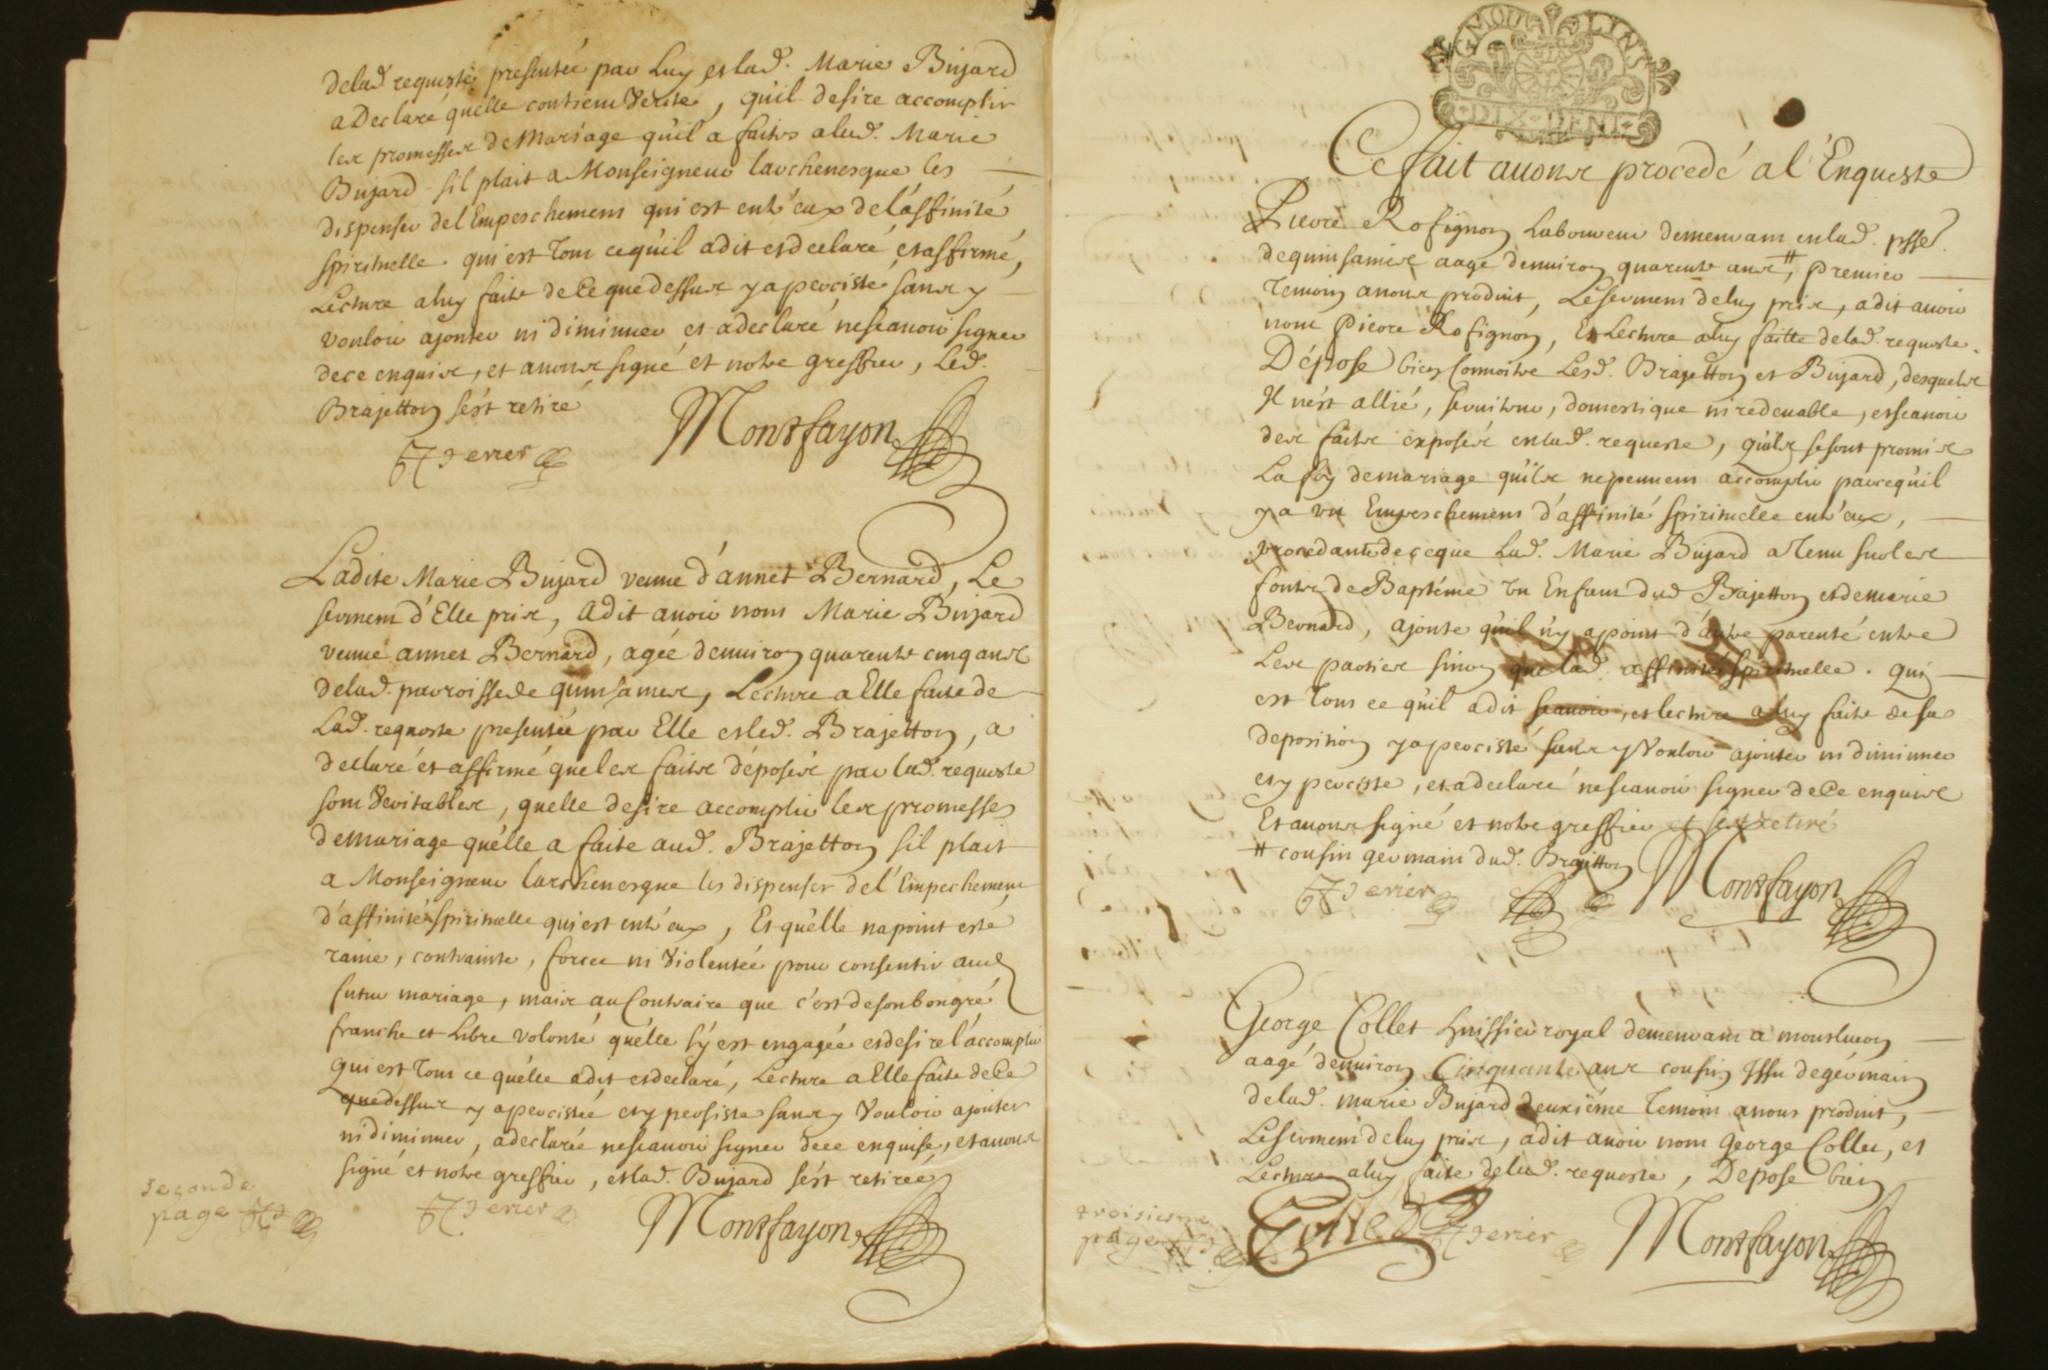 delad. requeste presentée par Luy et lad. Marie Bujard
a declaré quelle contient Verité, quil desire accomplir
les promesses de Mariage qu'il a faites alad. Marie
Bujard sil plait a Monseigneur larchevesque les
dispenser del Empeschement qui est entr'eux del'affinité
spirituelle. qui est Tout cequ'il adit et declaré, et affirmé,
Lecture a luy faite de Ce que dessus y a percisté sans y
vouloir ajouter ni diminuer et adeclaré nescavoir signer
de ce enquis, et avons signé et notre greffier, Led.
Brajetton s'est retiré
Montfayon
Ladite Marie Bujard veuve d'annet Bernard, Le
serment d'Elle pris, adit avoir nom Marie Bujard
veuve annet Bernard, agée denviron quarente cinq ans
delad. parroisse de quinsaines, Lecture a Elle faite de
Lad. requeste presentée par Elle et led. Brajetton, a
declaré et affirmé que les faits déposés par lad. requeste
sont Veritables, quelle desire accomplir les promesses
de mariage quélle a faite aud. Brajetton sil plait
a Monseigneur larchevesque les dispenser del'Empechement
d'affinité spirituelle qui est entr'eux, Et quélle na point esté
ravie, contrainte, forcée ni Violentée pour consentir aud.
futur mariage, mais au Contraire que c'est de son bon gré
franche et Libre volonté quélle s'y est engagée et desire l'accomplir
qui est Tout ce quélle adit et declaré, Lecture a Elle faite de Ce
que dessus y a percistée et y persiste sans y Vouloir ajouter
ni diminuer, adeclarée nescavoir signer de ce enquise, et avons
signé et notre greffier, et lad. Bujard s'est retirée
seconde
page
Montfayon
G MOULINS
DIX DENI
Ce fait avons procedé a l'Enqueste
Pierre Rosignon Laboureur demeurant en lad. psse.
de quinsaines aagé denviron quarente ans #, premier
Temoin a nous produit, Le serment de luy pris, adit avoir
nom Pierre Rosignon, Et Lecture aluy faitte delad. requeste.
Dépose bien Connoitre Lesd. Brajetton et Bujard, desquels
Il n'est allié, serviteur, domestique ni redevable, et scavoir
des faits exposés en lad. requeste, quils se sont promis
La foy de mariage quils ne peuvent accomplir parcequ'il
y a un Empeschement d'affinité spirituelle entr'eux,
procedante de ce que Lad. Marie Bujard a Tenu sur les
fonts de Baptéme un Enfant dud Brajetton et de marie
Bernard, ajoute qu'il n'y a point d'autre parenté entre
Les parties sinon que lad. affinité spirituelle. qui
est Tout ce qu'il adit scavoir, et lecture a luy faite de sa
deposition y a percisté sans y Vouloir ajouter ni diminuer
et y perciste, et a declaré nescavoir signer de Ce enquis
Et avons signé et notre greffier et s'est retiré
# cousin germain dud. Brajetton
Montfayon
George Collet huissier royal demeurant a montlucon
aagé d'environ Cinquante ans cousin Issu de germain
delad. marie Bujard deuxiéme Temoin a nous produit,
Le serment de luy pris, adit avoir nom George Collet, et
Lecture a luy faite delad. requeste, Depose bien
troisiesme
page
Collet
Montfayon